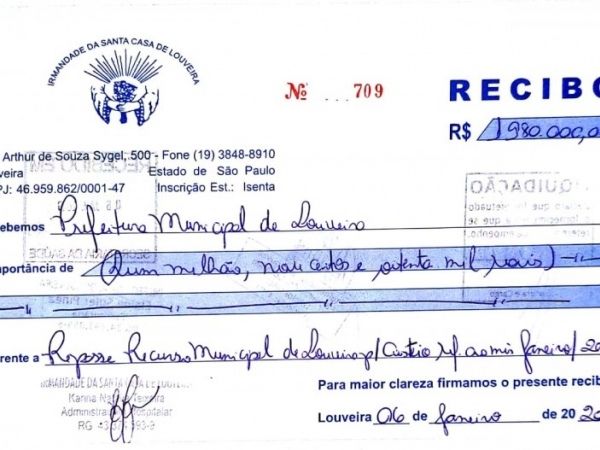 IRMANDADE DA SANTA CASA DE LOUVEIRA
Nº 709
RECIBO
R$ 1980.000,0
Arthur de Souza Sygel, 500 - Fone (19) 3848-8910
veira Estado de São Paulo
PJ: 46.959.862/0001-47 Inscrição Est.: Isenta
cebemos Prefeitura Municipal de Louveira
mportância de (Hum milhão, novecentos e oitenta mil reais)
erente a Repasse Recurso Municipal de Louveira p/ Custeio ref. ao mês Janeiro/20
IRMANDADE DA SANTA CASA DE LOUVEIRA
Administra Hospitalar
Para maior clareza firmamos o presente recib
Louveira 06 de Janeiro de 20 20